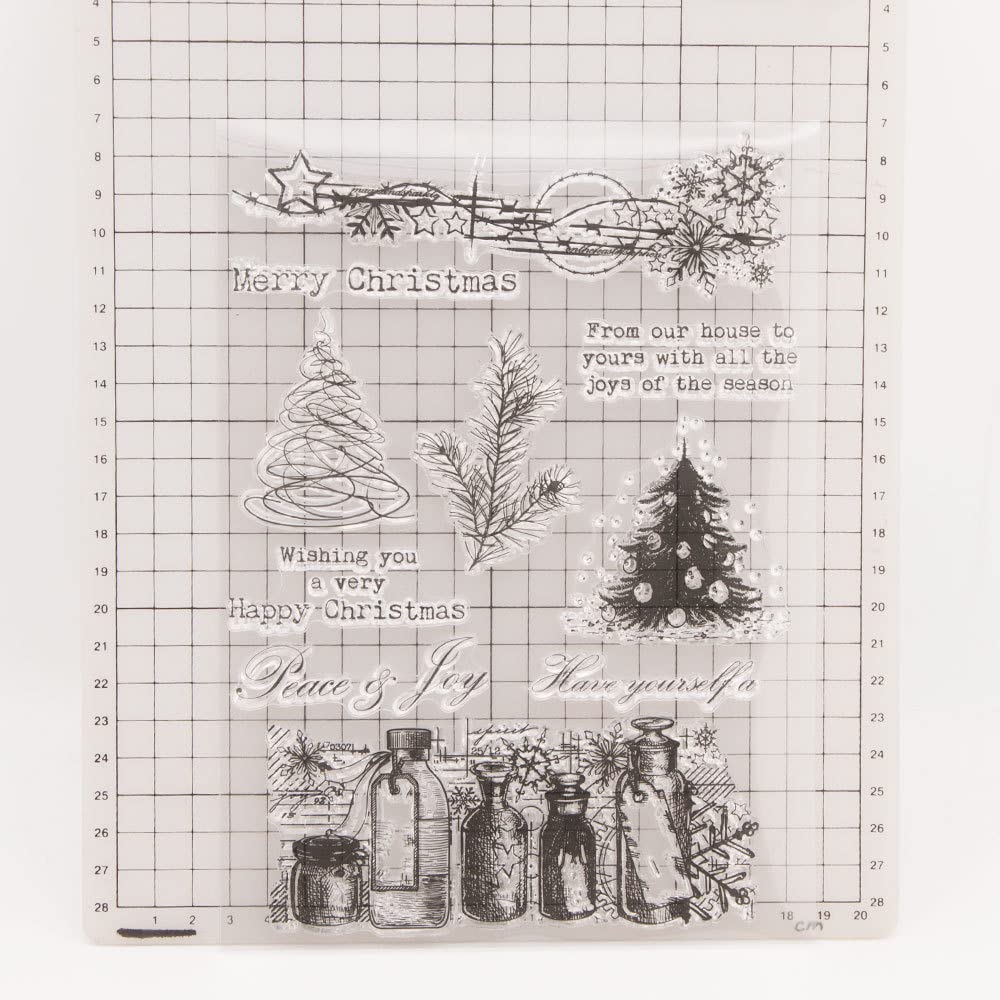 4
4
5
5
6
6
7
7
8
8
9
9
10
10
11
11
Merry Christmas
12
12
From our house to
13
13
yours with all the
14
14
joys of the season
15
15
16
16
17
17
18
18
Wishing you
19
19
a very
20
20
Happy Christmas
21
21
Peace & Joy
Have yourself a
22
22
23
23
spirit
24
24
25/12
25
25
26
26
27
27
28
28
1 2 3 18 19 20
cm